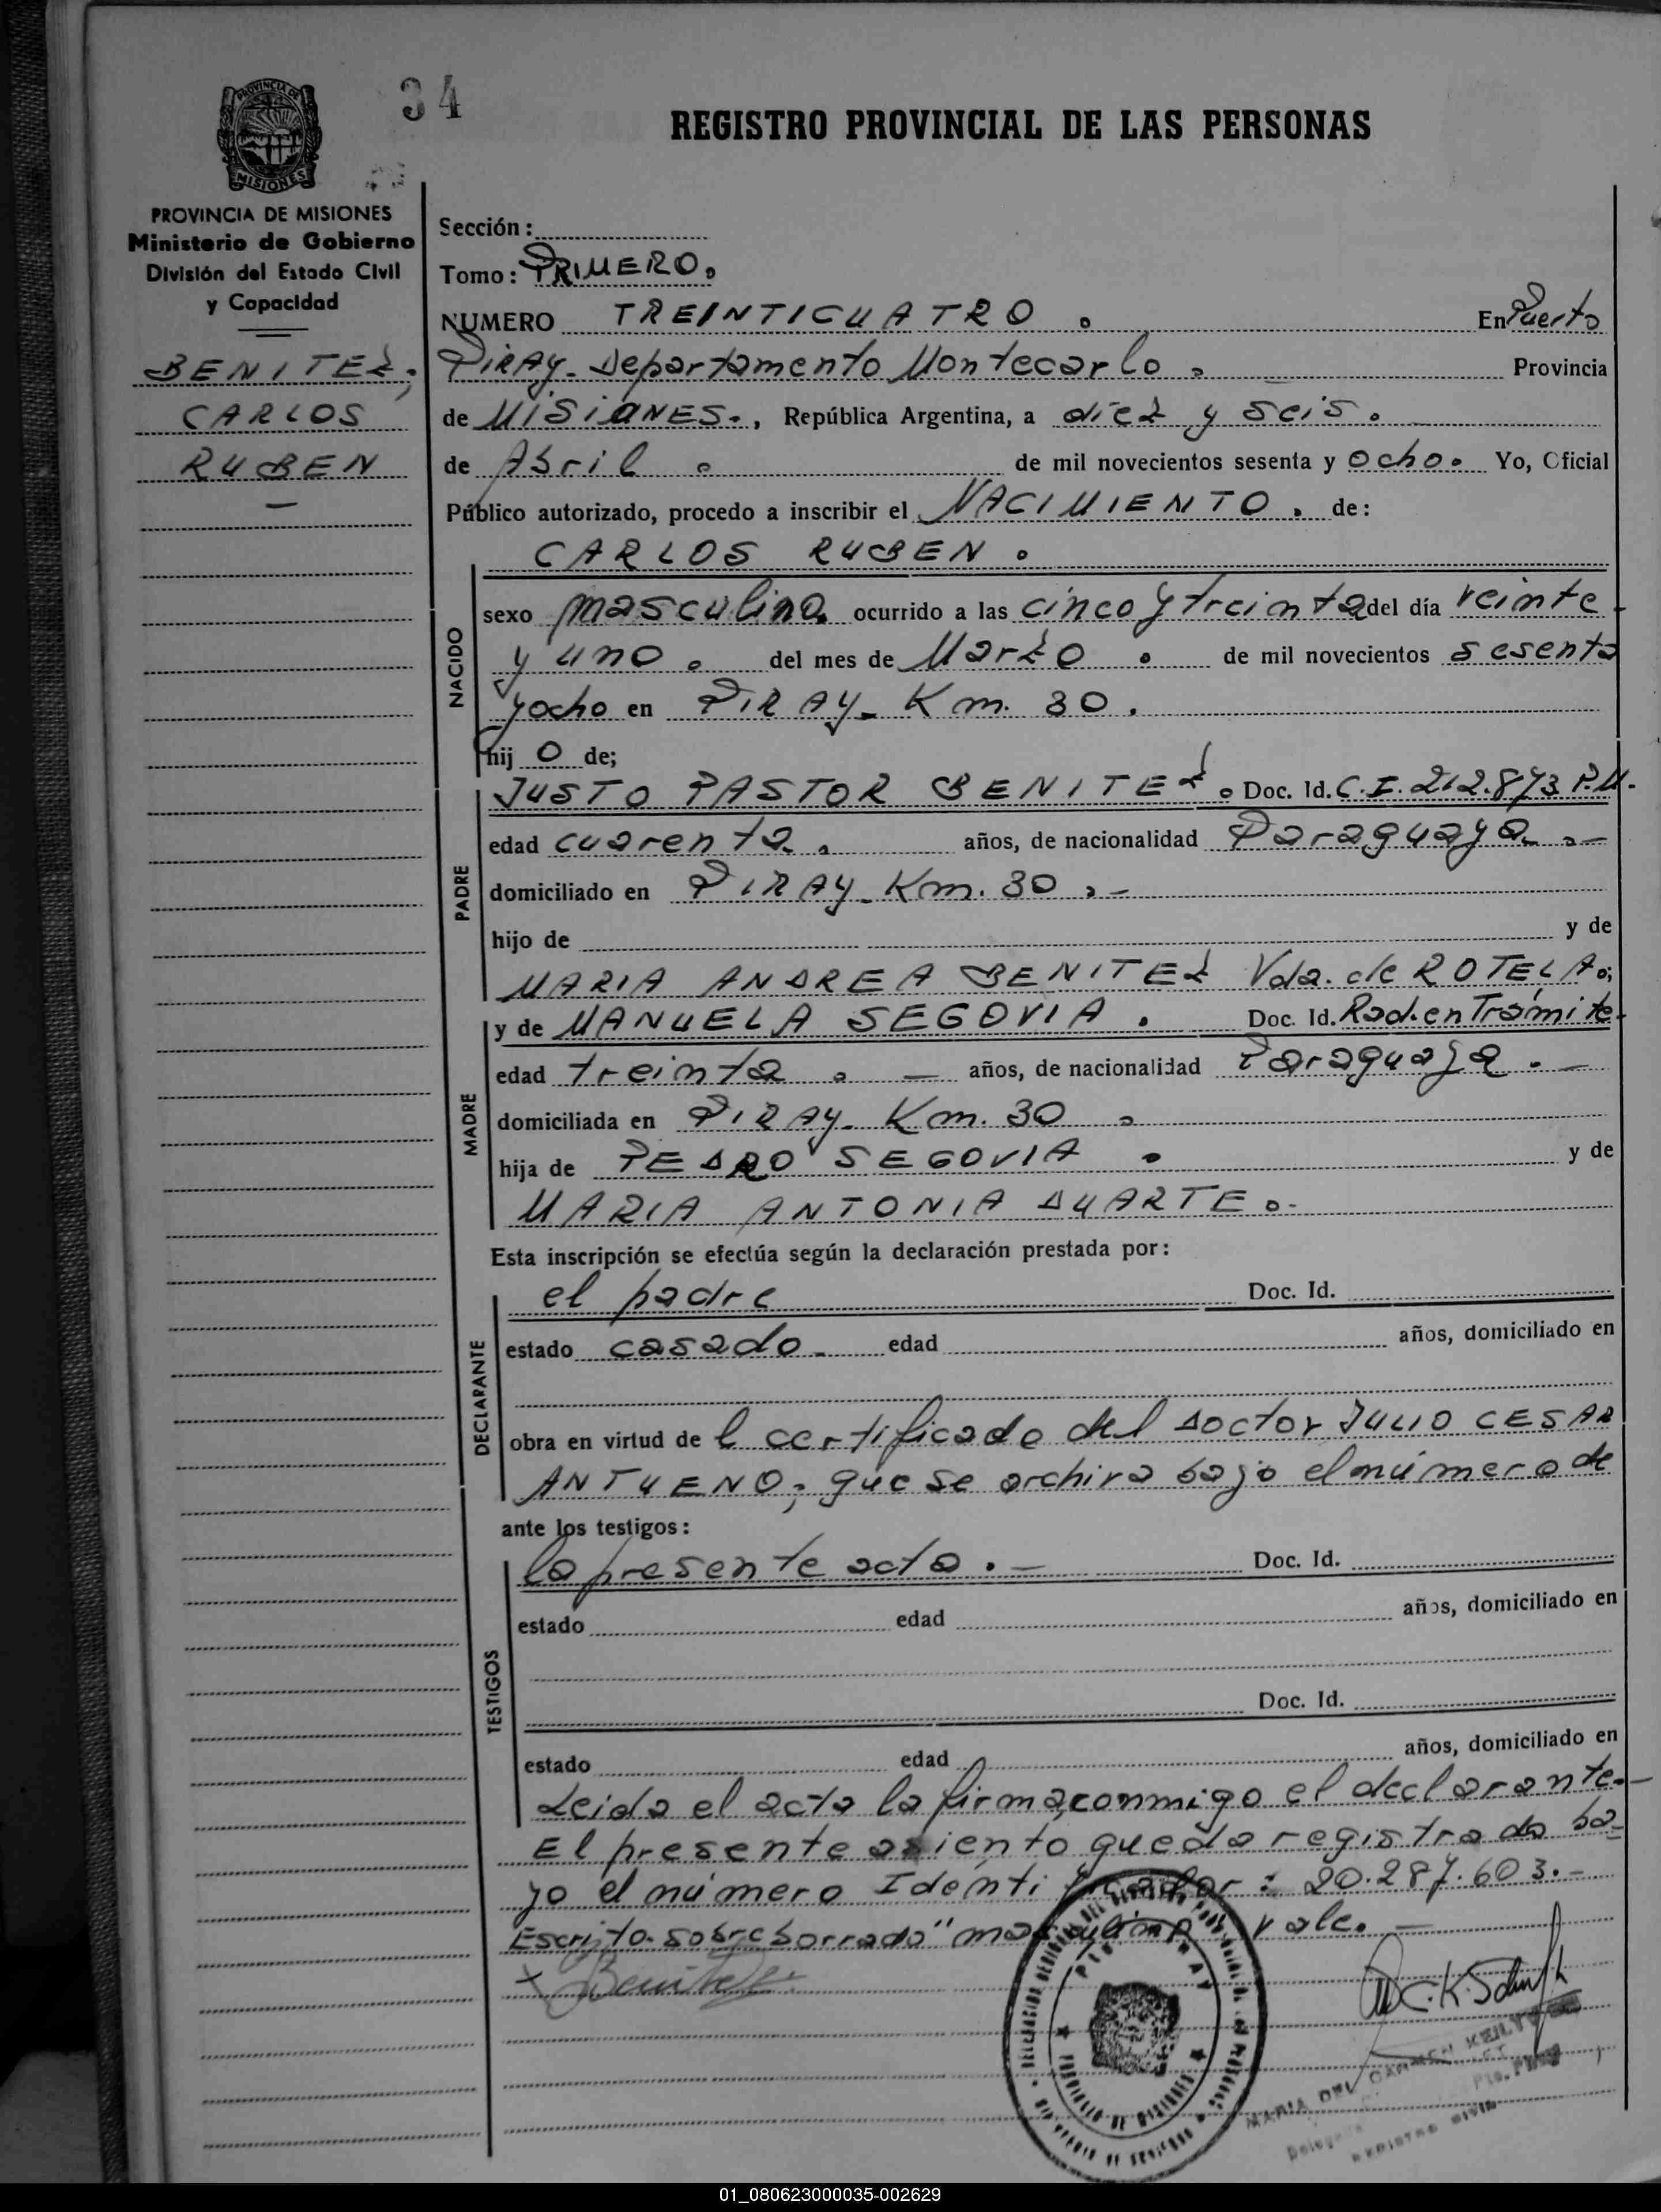 34
REGISTRO PROVINCIAL DE LAS PERSONAS
PROVINCIA DE
MISIONES
PROVINCIA DE MISIONES
Ministerio de Gobierno
División del Estado Civil
y Capacidad
BENITEZ;
CARLOS
RUBEN
—
Sección:
Tomo: PRIMERO.
NUMERO TREINTICUATRO. En Puerto
PIRAY- Departamento Montecarlo. Provincia
de MISIONES., República Argentina, a diez y seis.
de Abril. de mil novecientos sesenta y ocho. Yo, Oficial
Público autorizado, procedo a inscribir el NACIMIENTO. de:
CARLOS RUBEN.
NACIDO
sexo masculino. ocurrido a las cinco y treinta del día veinte
y uno. del mes de Marzo. de mil novecientos sesenta
y ocho en PIRAY- Km. 30.
hij o de;
PADRE
JUSTO PASTOR BENITEZ. Doc. Id. C.I. 212.873 P.M.
edad cuarenta. años, de nacionalidad Paraguaya.-
domiciliado en PIRAY- Km. 30.-
hijo de y de
MARIA ANDREA BENITEZ Vda. de ROTELA.;
MADRE
y de MANUELA SEGOVIA. Doc. Id. Rad. en Trámite.
edad treinta. — años, de nacionalidad Paraguaya.-
domiciliada en PIRAY- Km. 30.
hija de PEDRO SEGOVIA. y de
MARIA ANTONIA DUARTE.-
Esta inscripción se efectúa según la declaración prestada por:
DECLARANTE
el padre Doc. Id.
estado casado. edad años, domiciliado en
obra en virtud de l certificado del Doctor JULIO CESAR
ANTUENO; que se archiva bajo el número de
ante los testigos:
TESTIGOS
la presente acta.- Doc. Id.
estado edad años, domiciliado en
Doc. Id.
estado edad años, domiciliado en
Leida el acta la firma, conmigo el declarante.-
El presente asiento queda registrado ba-
jo el número Identificador: 20.287.603.-
Escrito sobreborrado "masculino" vale. —
x Benitez
MARIA DEL CARMEN
01_080623000035-002629